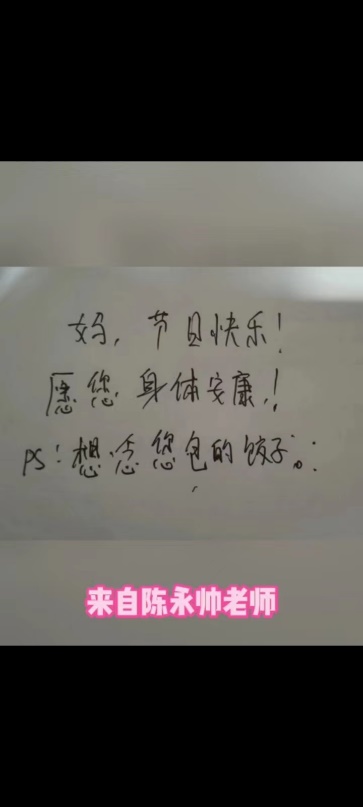 妈，节日快乐！
愿您身体安康！
PS：想念您包的饺子。
来自陈永帅老师